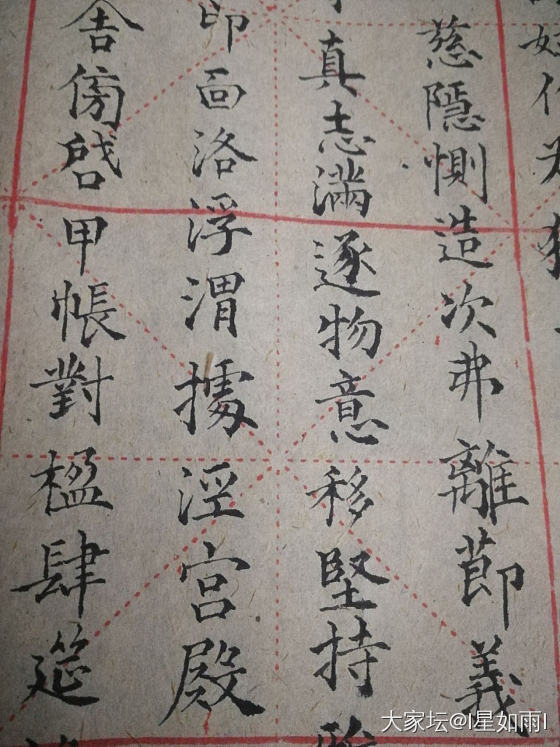 慈隱惻造次弗離節義
真志滿逐物意移堅持
邙面洛浮渭據涇宮殿
舍傍啓甲帳對楹肆筵
大家坛@l星如雨l